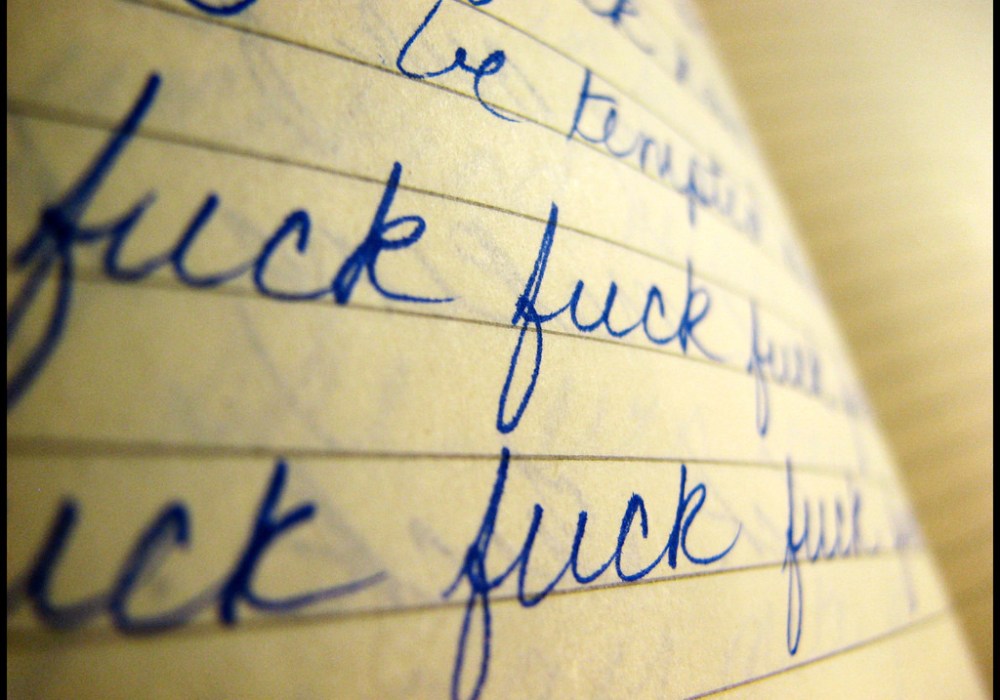 be tempted
fuck fuck fuck
uck fuck fuck